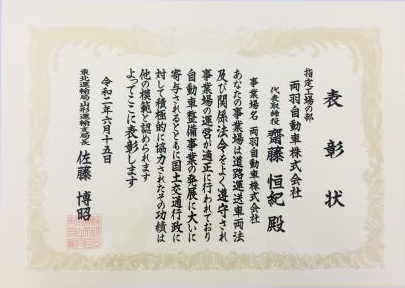 表彰状
指定工場の部
両羽自動車株式会社
代表取締役 齋藤恒紀殿
事業場名 両羽自動車株式会社
あなたの事業場は道路運送車両法
及び関係法令をよく遵守され
事業場の運営が適正に行われており
自動車整備事業の発展に大いに
寄与されるとともに国土交通行政に
対して積極的に協力されたその功績は
他の模範と認められます
よってここに表彰します
令和二年六月十五日
東北運輸局山形運輸支局長 佐藤博昭